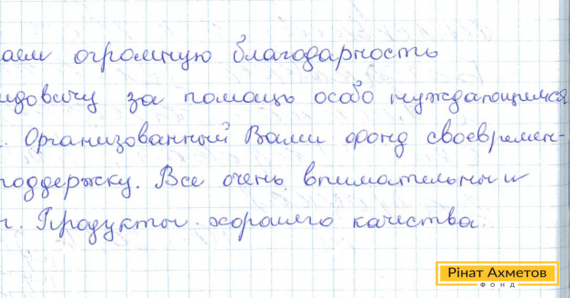 аем огромную благодарность
идовичу за помощь особо нуждающимся
. Организованный Вами фонд своевремен-
поддержку. Все очень внимательны и
. Продукты хорошего качества.
Рінат Ахметов
ФОНД